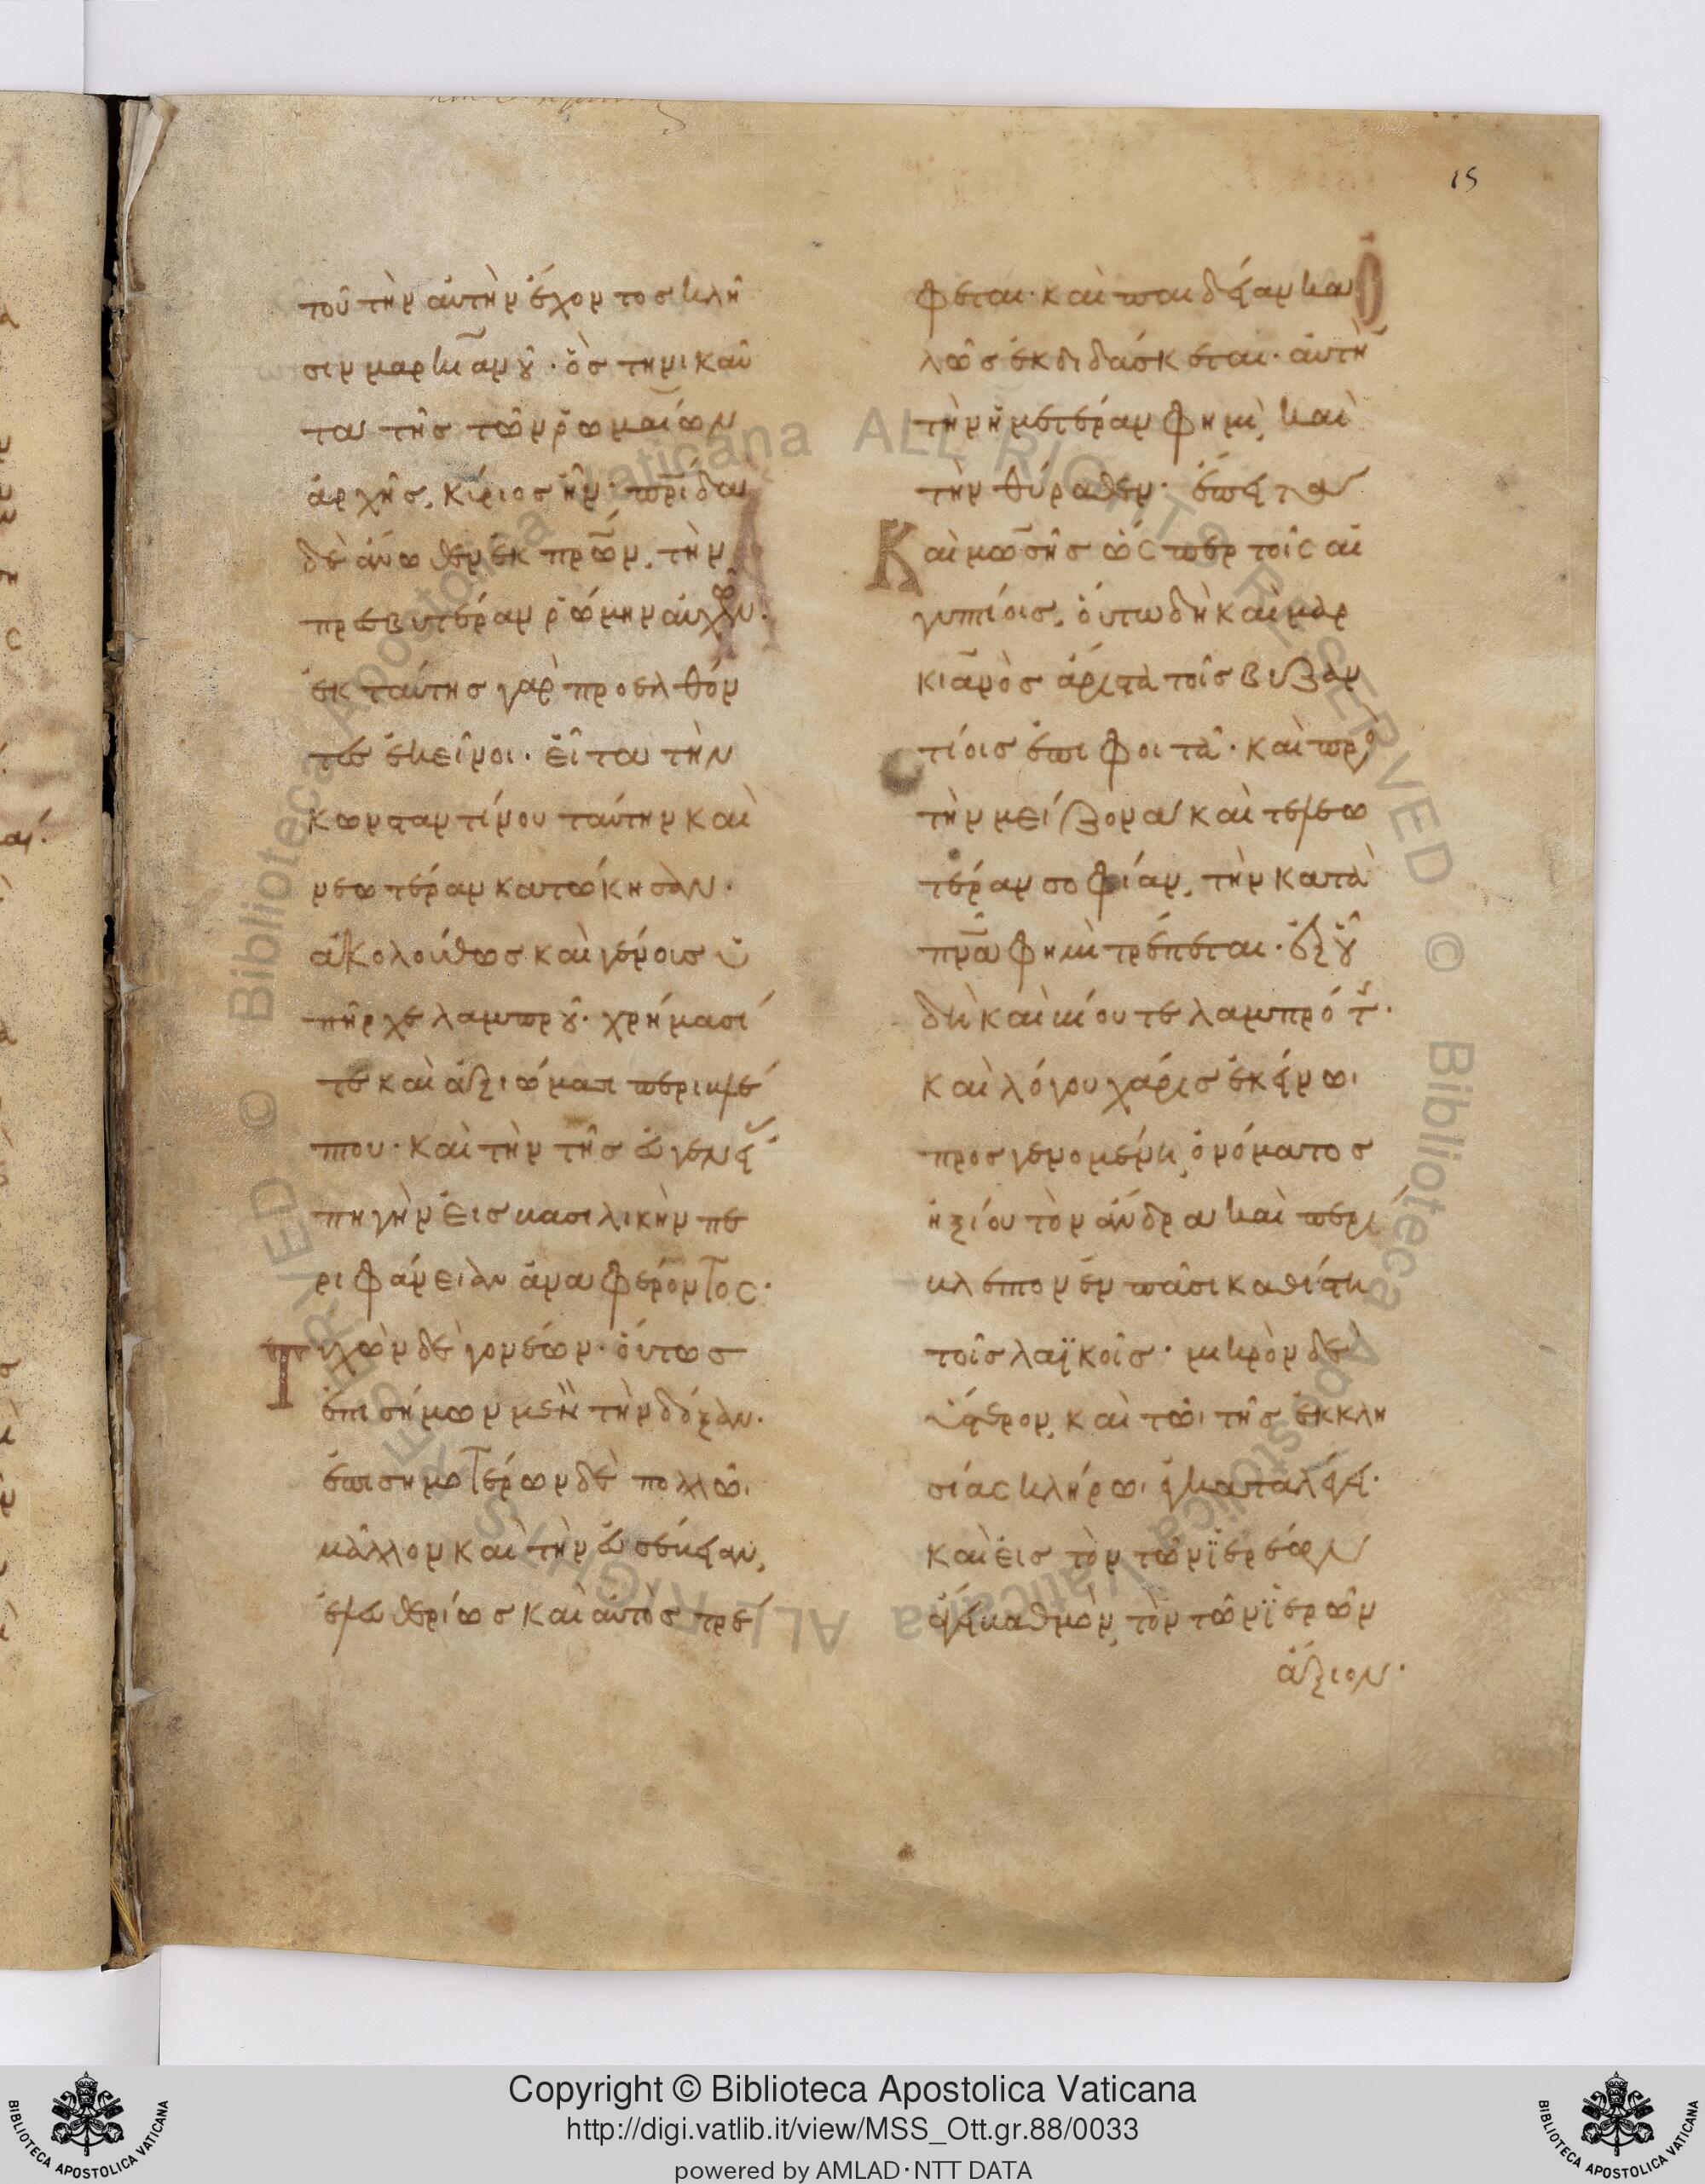 15
τοῦ τὴν ἀυτὴν ἔχοντος κλῆ
σιν μαρκιανοῦ· ὃς τηνικαῦ
τα τῆς τῶν ῥωμαίων
ἀρχῆς, κύριος ἦν· πατρίδα
δὲ ἄνωθεν ἐκ πρ̅ων, τὴν
πρεσβυτέραν ῥώμην ἀυχῶν·
ἐκ ταύτης γὰρ προελθόν
τες ἐκεῖνοι· εἶτα τὴν
κωνσταντίνου ταύτην καὶ
νεωτέραν κατώκησαν·
ἀκολούθως καὶ γένους ὑ
πῆρχε λαμπροῦ· χρήμασί
τε καὶ ἀξιώμασι περιβλέ
πτου· καὶ τὴν τῆς εὐγενεί
πηγὴν εἰς βασιλικὴν πε
ριφάνειαν ἀναφέροντος·
Τυχὼν δὲ γονέων· οὕτως
ἐπισήμων μὲν τὴν δόξαν·
ἐπισημοτέρων δὲ πολλῶι
μᾶλλον καὶ τὴν εὐσέβειαν,
ἐλευθερίως καὶ ἀυτὸς τρέ
φεται· καὶ παιδείαν κα
λῶς ἐκδιδάσκεται· ἀυτήν
τὴν ἡμετέραν φημὶ, καὶ
τὴν θύραθεν· ἔπειτα
Καὶ μωσῆς ὥσπερ τοῖς αἰ
γυπτίοις, οὕτω δὴ καὶ μαρ
κιανὸς ἄριστα τοῖς βυζαν
τίοις ἐπιφοιτᾶ· καὶ πρὸς
τὴν μείζονα καὶ τελεω
τέραν σοφίαν, τὴν κατὰ
πν̅α φημὶ τρέπεται· ἐξ οὗ
δὴ καὶ βίου τε λαμπρότης·
καὶ λόγου χάρις ἐκείνωι
προσγενομένη, ὀνόματος
ἠξίου τὸν ἄνδρα καὶ περί
βλεπτον ἐν πᾶσι καθίστη
τοῖς λαϊκοῖς· μικρὸν δὲ
ὕστερον, καὶ τῶι τῆς ἐκκλη
σίας κλήρωι
καὶ εἰς τὸν τῶν ἱερέων
ἀναβαθμὸν, τὸν τῶν ἱερῶν
ἄξιον·
Copyright © Biblioteca Apostolica Vaticana
http://digi.vatlib.it/view/MSS_Ott.gr.88/0033
powered by AMLAD·NTT DATA
BIBLIOTECA APOSTOLICA VATICANA
BIBLIOTECA APOSTOLICA VATICANA